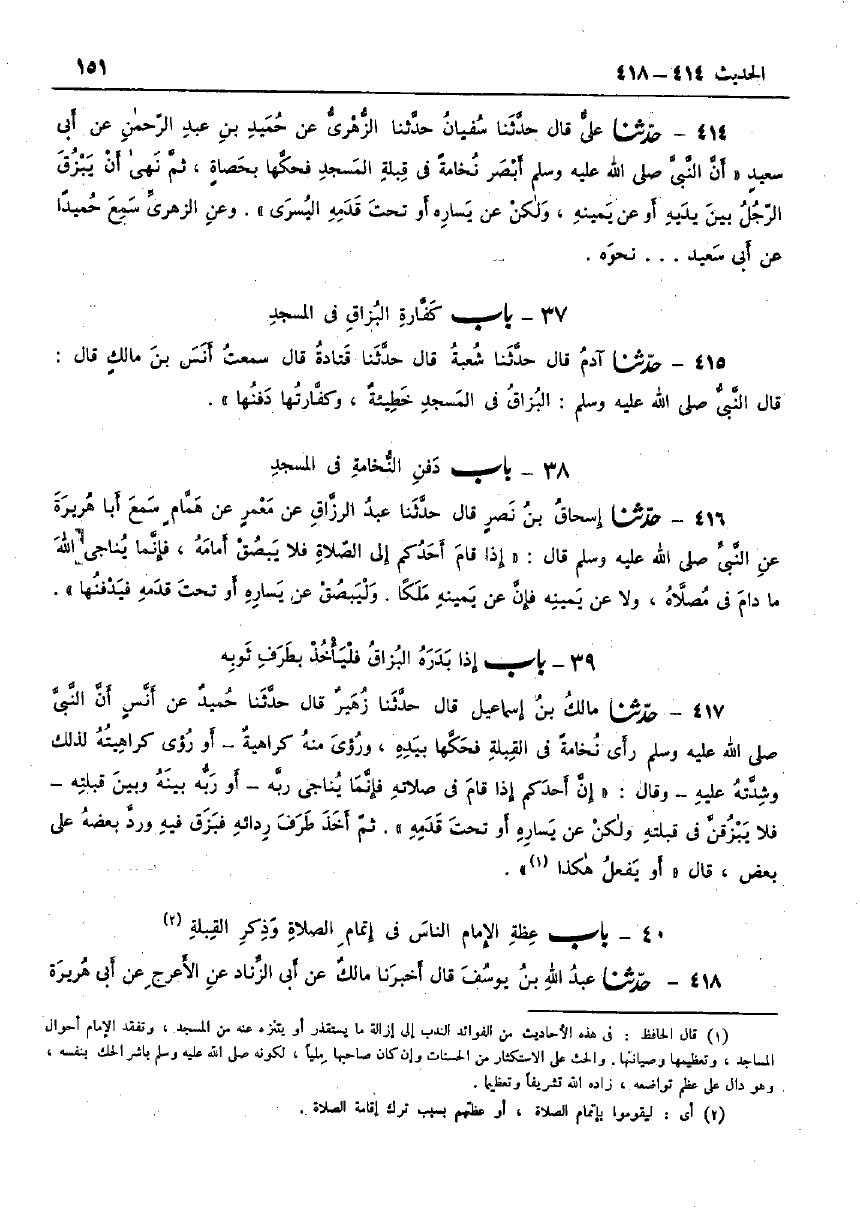 الحديث ٤١٤ – ٤١٨
١٥١
٤١٤ – حدّثنا علىٌّ قال حدَّثَنا سُفيانُ حدَّثَنا الزُّهْرىُّ عن حُمَيدِ بنِ عبدِ الرّحمٰنِ عن أبى
سعيدٍ « أنَّ النَّبىَّ صلى الله عليه وسلم أَبْصَر نُخامةً فى قِبلةِ المَسجدِ فحكَّها بحَصاةٍ ، ثمَّ نَهىٰ أنْ يَبْزُقَ
الرّجُلُ بينَ يديَهِ أو عن يَمينهِ ، ولَٰكنْ عن يَسارِه أو تحتَ قَدَمِهِ اليُسرَى » . وعنِ الزهرىِّ سَمِعَ حُميدًا
عن أبى سَعيد ... نحوَه .
٣٧ – باب كَفَّارةِ البُزاقِ فى المسجدِ
٤١٥ – حدّثنا آدمُ قال حدَّثَنا شُعبةُ قال حدَّثَنا قَتادةُ قال سمعتُ أَنَسَ بنَ مالكٍ قال :
قال النَّبىُّ صلى الله عليه وسلم : البُزاقُ فى المَسجدِ خَطِيئةٌ ، وكفَّارتُها دَفنُها » .
٣٨ – باب دَفنِ النُّخامةِ فى المسجدِ
٤١٦ – حدّثنا إسحاقُ بنُ نَصرٍ قال حدَّثَنا عبدُ الرزَّاقِ عن مَعْمرٍ عن هَمَّامٍ سَمعَ أبا هُريرَةَ
عنِ النَّبىِّ صلى الله عليه وسلم قال : « إذا قامَ أحَدُكم إلى الصّلاةِ فلا يَبصُقْ أمامَهُ ، فإنَّما يُناجى اللهَ
ما دامَ فى مُصلَّاهُ ، ولا عن يَمينِه فإنَّ عن يَمينهِ مَلَكًا . وَلْيَبصُقْ عن يَسارِهِ أو تحتَ قدَمهِ فيَدْفنُها » .
٣٩ – باب إذا بَدَرَهُ البُزاقُ فليَأْخُذْ بطَرَفِ ثَوبِه
٤١٧ – حدّثنا مالكُ بنُ إسماعيل قال حدَّثَنا زُهَيرٌ قال حدَّثَنا حُميدٌ عن أَنَسٍ أنَّ النَّبىَّ
صلى الله عليه وسلم رأى نُخامةً فى القِبلةِ فحَكَّها بيَدِه ، ورُؤىَ منهُ كراهيةٌ – أو رُؤى كراهيتُهُ لذلك
وشِدَّتهُ عليهِ – وقال : « إنَّ أحدَكم إذا قامَ فى صلاتهِ فإنَّمَا يُناجى ربَّه – أو رَبُّه بينَهُ وبينَ قبلتِه –
فلا يَبْزُقنَّ فى قبلتهِ ولٰكنْ عن يَسارِهِ أو تحتَ قَدَمِهِ » . ثمّ أخَذَ طَرَفَ رِدائهِ فبَزَق فيه وردَّ بعضَهُ على
بعض ، قال « أو يَفعلُ هٰكذا (١) » .
٤٠ – باب عِظةِ الإمام الناسَ فى إتمامِ الصلاةِ وَذِكرِ القِبلةِ (٢)
٤١٨ – حدّثنا عبدُ اللهِ بنُ يوسُفَ قال أخبرَنا مالكٌ عن أبى الزِّناد عنِ الأعرجِ عن أبى هُريرَة
(١) قال الحافظ : فى هذه الأحاديث من الفوائد الندب إلى إزالة ما يستقذر أو يتنزه عنه من المسجد ، وتفقد الإمام أحوال
المساجد ، وتعظيمها وصيانتها . والحث على الاستكثار من الحسنات وإن كان صاحبها مِلياً ، لكونه صلى الله عليه وسلم باشر الحك بنفسه ،
وهو دال على عظم تواضعه ، زاده الله تشريفاً وتعظيما .
(٢) أى : ليقوموا بإتمام الصلاة ، أو عظتهم بسبب ترك إقامة الصلاة .